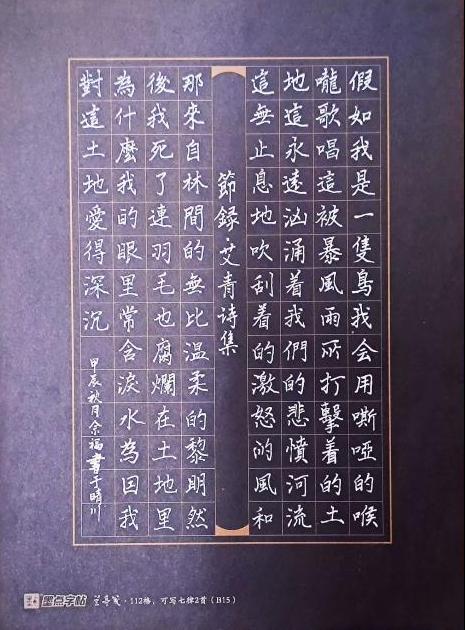 假如我是一隻鳥我会用嘶啞的喉
嚨歌唱這被暴風雨所打擊着的土
地這永遠汹涌着我們的悲憤河流
這無止息地吹刮着的激怒的風和
節録·艾青诗集
那來自林間的無比温柔的黎明然
後我死了連羽毛也腐爛在土地里
為什麼我的眼里常含淚水為因我
對這土地愛得深沉
甲辰秋月余福書于晴川
墨点字帖 112格，可写七律2首（B15）